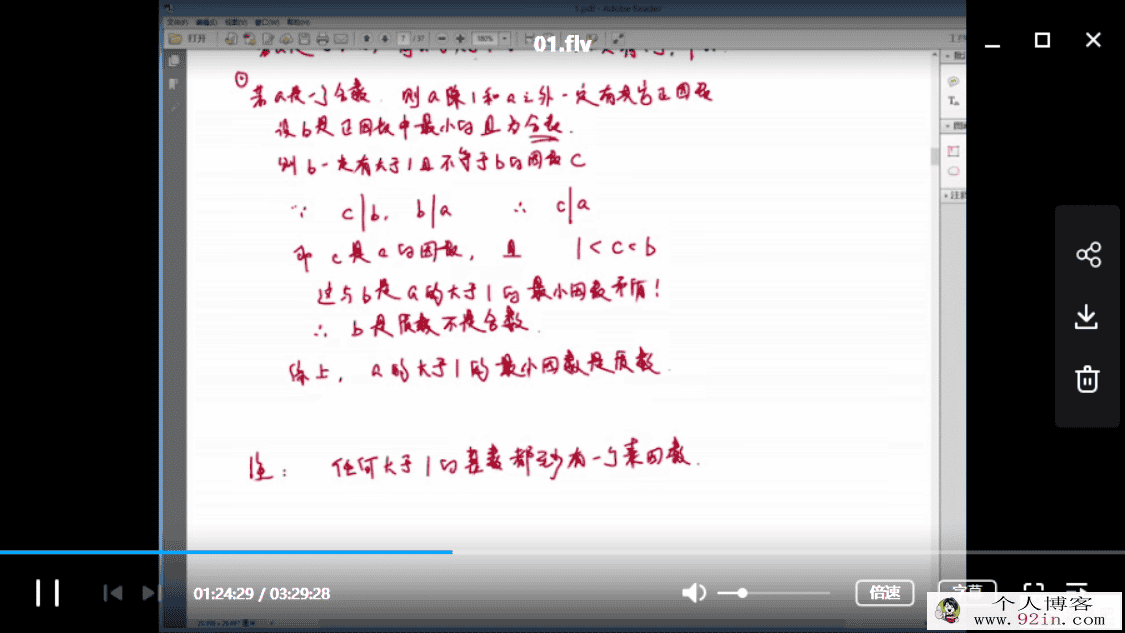 1.pdf - Adobe Reader
文件(F) 编辑(E) 视图(V) 窗口(W) 帮助(H)
打开 7 / 37 180%
01.flv
若a是一个合数. 则a除1和a之外一定有其它正因数
设b是正因数中最小的且为合数.
则b一定有大于1且不等于b的因数c
∵ c|b, b|a ∴ c|a
即c是a的因数, 且 1<c<b
这与b是a的大于1的最小因数矛盾!
∴ b是质数不是合数.
综上, a的大于1的最小因数是质数.
注: 任何大于1的整数都至少有一个素因数.
01:24:29 / 03:29:28
倍速
字幕
个人博客
www.92in.com